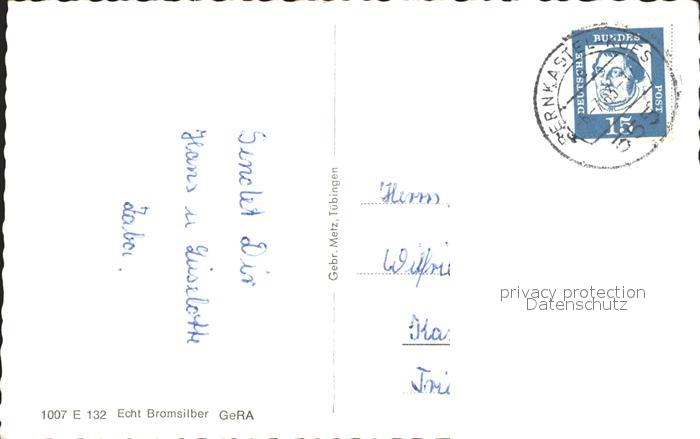 Sendet Dir
Hans u Liselotte
Gebr. Metz, Tübingen
1007 E 132 Echt Bromsilber GeRA
BERNKASTEL-KUES
DEUTSCHE BUNDES POST
15
Herrn
Wilfrie
Kas
Trie
privacy protection
Datenschutz